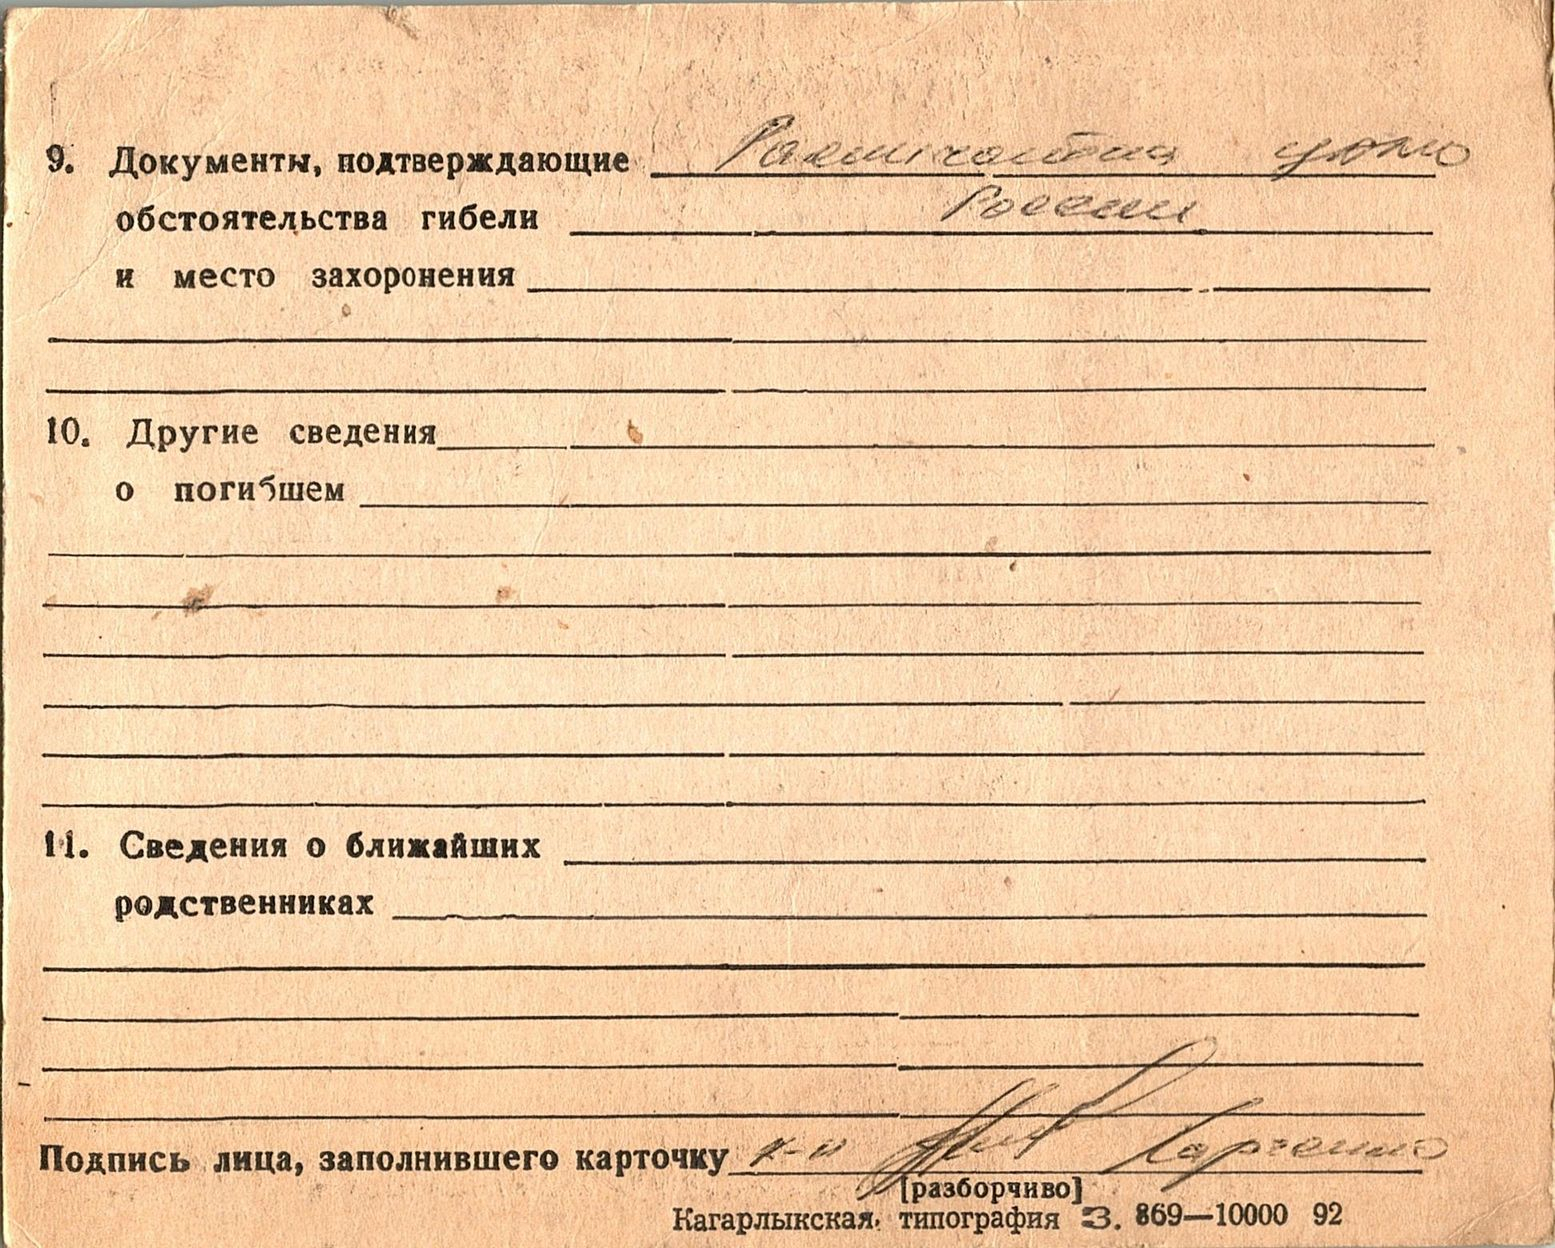 9. Документы, подтверждающие
обстоятельства гибели России
и место захоронения
10. Другие сведения
о погибшем
11. Сведения о ближайших
родственниках
Подпись лица, заполнившего карточку к-н
[разборчиво]
Кагарлыкская типография З. 869—10000 92